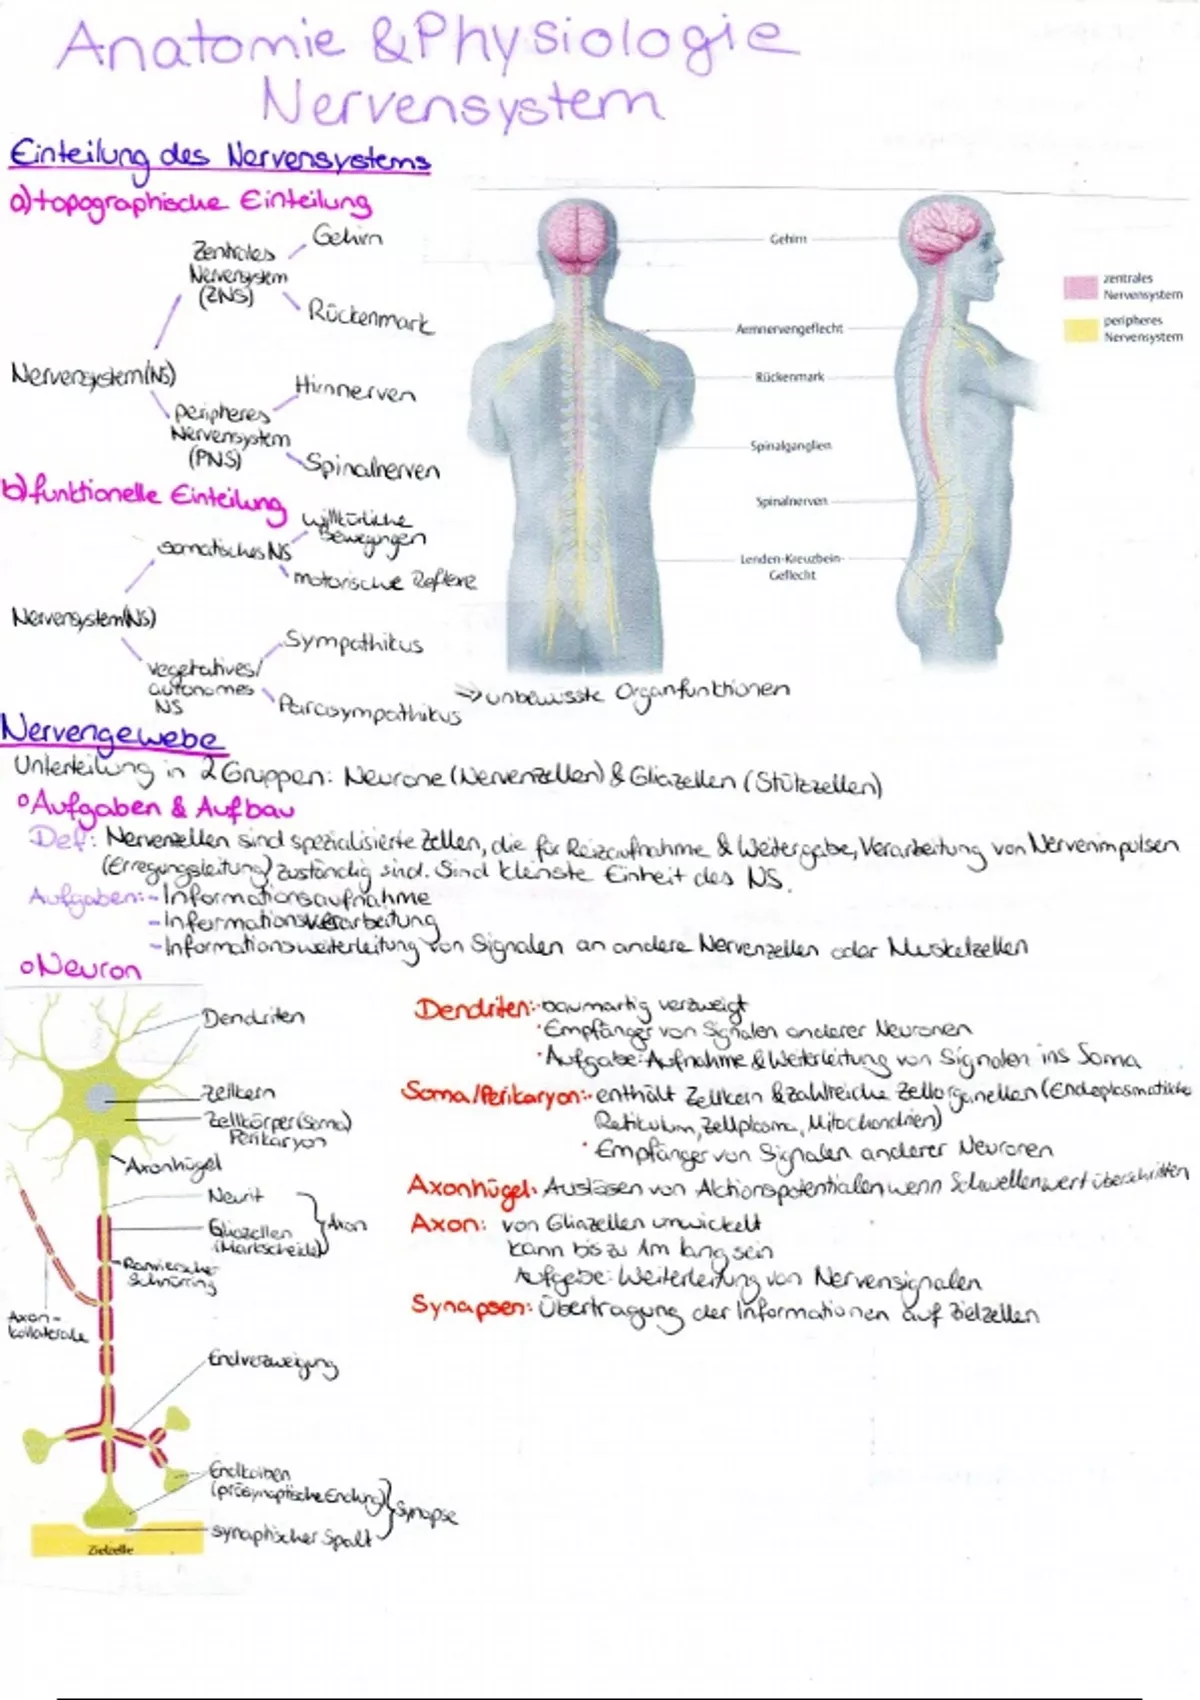 Anatomie & Physiologie
Nervensystem
Einteilung des Nervensystems
a) topographische Einteilung
Zentrales
Nervensystem
(ZNS)
Gehirn
Rückenmark
Nervensystem (NS)
peripheres
Nervensystem
(PNS)
Hirnnerven
Spinalnerven
Gehirn
Armnervengeflecht
Rückenmark
Spinalganglien
Spinalnerven
Lenden-Kreuzbein-
Geflecht
zentrales
Nervensystem
peripheres
Nervensystem
b) funktionelle Einteilung
somatisches NS
willkürliche
Bewegungen
motorische Reflexe
Nervensystem (NS)
vegetatives/
autonomes
NS
Sympathikus
Parasympathikus
=> unbewusste Organfunktionen
Nervengewebe
Unterteilung in 2 Gruppen: Neurone (Nervenzellen) & Gliazellen (Stützzellen)
° Aufgaben & Aufbau
Def: Nervenzellen sind spezialisierte Zellen, die für Reizaufnahme & Weitergabe, Verarbeitung von Nervenimpulsen
(Erregungsleitung) zuständig sind. Sind kleinste Einheit des NS.
Aufgaben: - Informationsaufnahme
- Informationsverarbeitung
- Informationsweiterleitung von Signalen an andere Nervenzellen oder Muskelzellen
° Neuron
Dendriten
Zellkern
Zellkörper (Soma)
Perikaryon
Axonhügel
Neurit
Gliazellen
(Markscheide)
Axon
Ranvierscher
Schnürring
Axon-
kollaterale
Endverzweigung
Endkolben
(präsynaptische Endung)
Synapse
synaptischer Spalt
Zielzelle
Dendriten: · baumartig verzweigt
· Empfänger von Signalen anderer Neuronen
· Aufgabe: Aufnahme & Weiterleitung von Signalen ins Soma
Soma/Perikaryon: · enthält Zellkern & zahlreiche Zellorganellen (Endoplasmatische
Retikulum, Zellplasma, Mitochondrien)
· Empfänger von Signalen anderer Neuronen
Axonhügel: Auslösen von Aktionspotentialen wenn Schwellenwert überschritten
Axon: von Gliazellen umwickelt
kann bis zu 1m lang sein
Aufgabe: Weiterleitung von Nervensignalen
Synapsen: Übertragung der Informationen auf Zielzellen